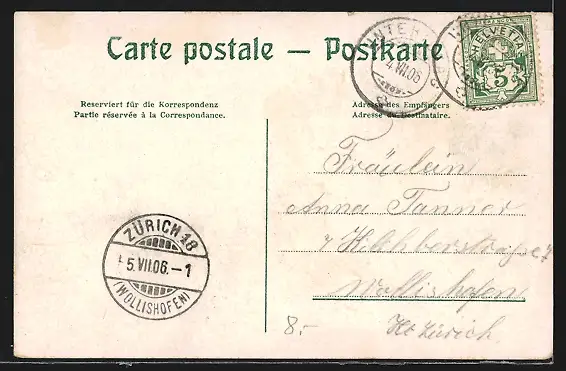 Carte postale — Postkarte
Reserviert für die Korrespondenz
Partie réservée à la Correspondance.
Adresse des Empfängers
Adresse du Destinataire.
UNTER
4.VII.06
HELVETIA
5
Fräulein
Anna Tanner
Kilchbergstraße 7
Wollishofen
Kt Zürich.
8.-
ZÜRICH 18
5.VII.06.-1
(WOLLISHOFEN)